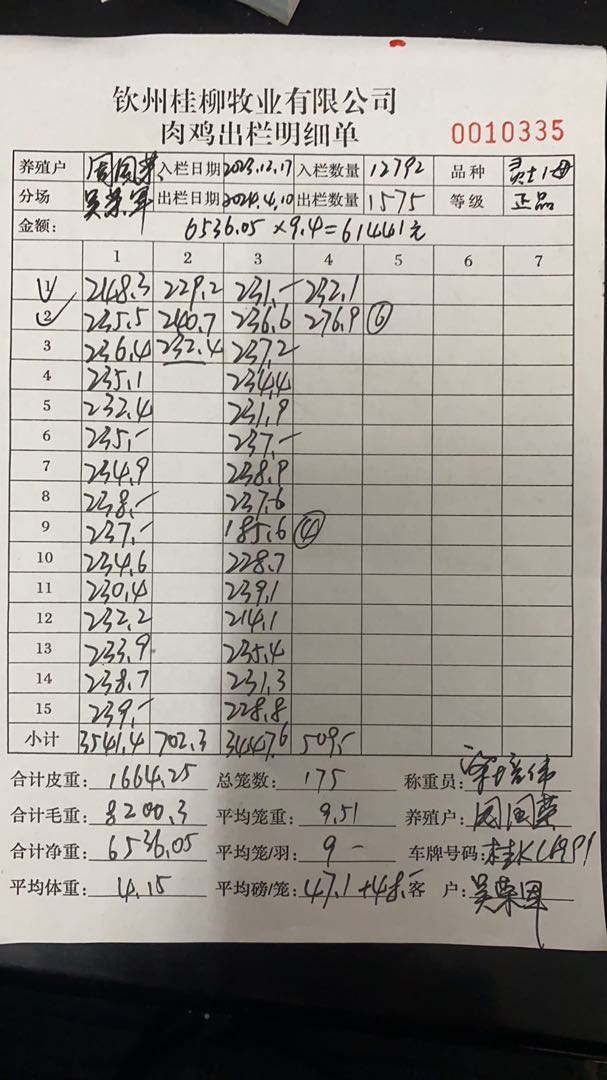 钦州桂柳牧业有限公司
肉鸡出栏明细单 0010335
养殖户 入栏日期 2023.12.17 入栏数量 12792 品种
分场 吴荣军 出栏日期 2024.4.10 出栏数量 1575 等级 正品
金额: 6536.05×9.4=61441元
1 2 3 4 5 6 7
1 2148.3 229.2 231.- 232.1
2 235.5 240.7 236.6 276.9 ⑥
3 236.4 232.4 237.2
4 235.1 234.4
5 232.4 231.9
6 235.- 237.-
7 234.9 238.9
8 238.- 237.6
9 237.- 185.6 ④
10 234.6 228.7
11 230.4 239.1
12 232.2 214.1
13 233.9 235.4
14 238.7 231.3
15 239.- 228.8
小计 3541.4 702.3 3447.6 509.-
合计皮重: 1664.25 总笼数: 175 称重员:
合计毛重: 8200.3 平均笼重: 9.51 养殖户:
合计净重: 6536.05 平均笼/羽: 9- 车牌号码:
平均体重: 4.15 平均磅/笼: 47.1+48.- 客户: